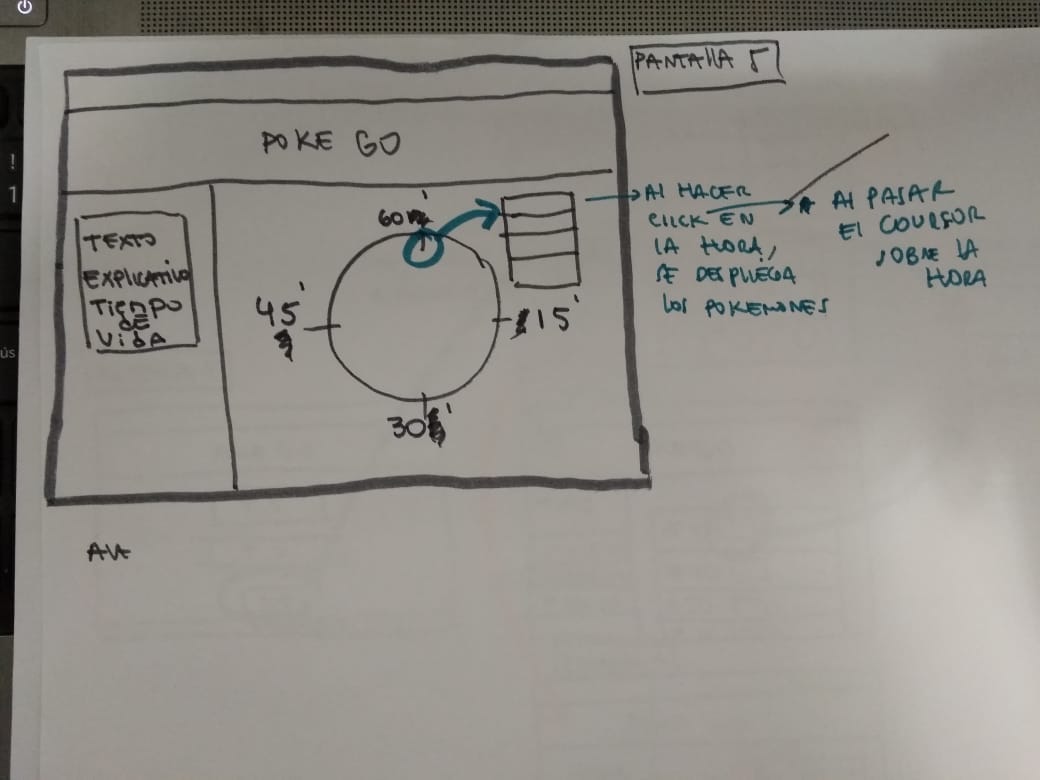 PANTALLA 5
POKE GO
TEXTO
EXPLICATIVO
TIEMPO
DE
VIDA
60'
45'
15'
30'
AL HACER
CLICK EN
LA HORA,
SE DESPLIEGA
LOS POKEMONES
AL PASAR
EL COURSOR
SOBRE LA
HORA